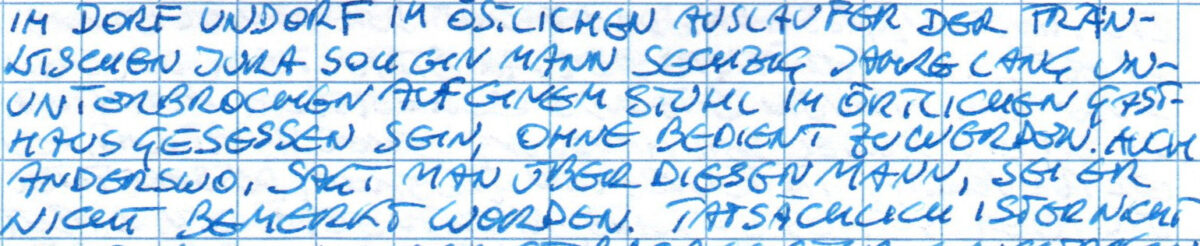 IM DORF UNDORF IM ÖSTLICHEN AUSLÄUFER DER FRÄN-
KISCHEN JURA SOLL EIN MANN SECHZIG JAHRE LANG UN-
UNTERBROCHEN AUF EINEM STUHL IM ÖRTLICHEN GAST-
HAUS GESESSEN SEIN, OHNE BEDIENT ZU WERDEN. AUCH
ANDERSWO, SAGT MAN ÜBER DIESEN MANN, SEI ER
NICHT BEMERKT WORDEN. TATSÄCHLICH IST ER NICHT